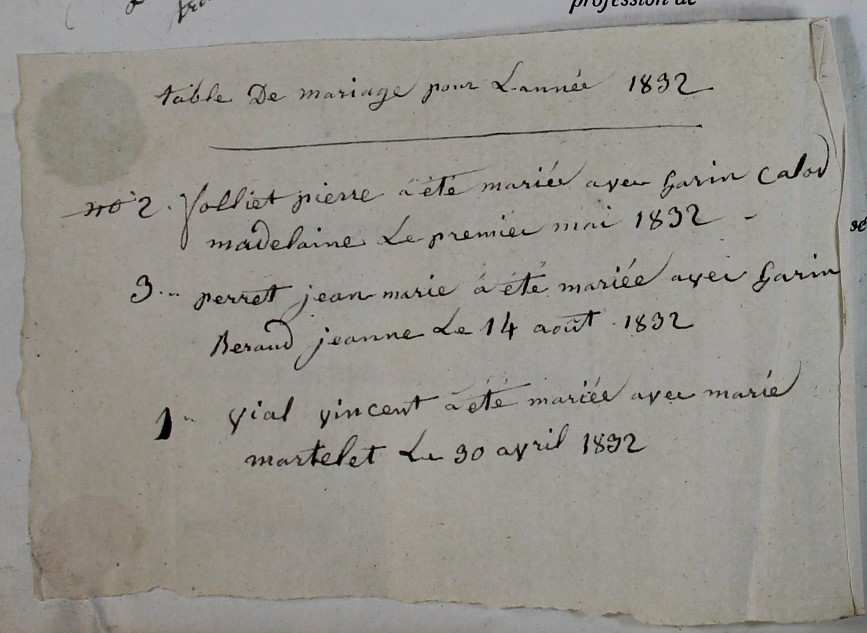 profession de
table De mariage pour L'année 1832
no 2. Jolliet pierre a été mariée avec Garin Calod
madelaine Le premier mai 1832 -
3.. perret jean marie á été mariée avec Garin
Beraud jeanne Le 14 août 1832
1.. Vial Vincent a été mariée avec marie
martelet Le 30 avril 1832